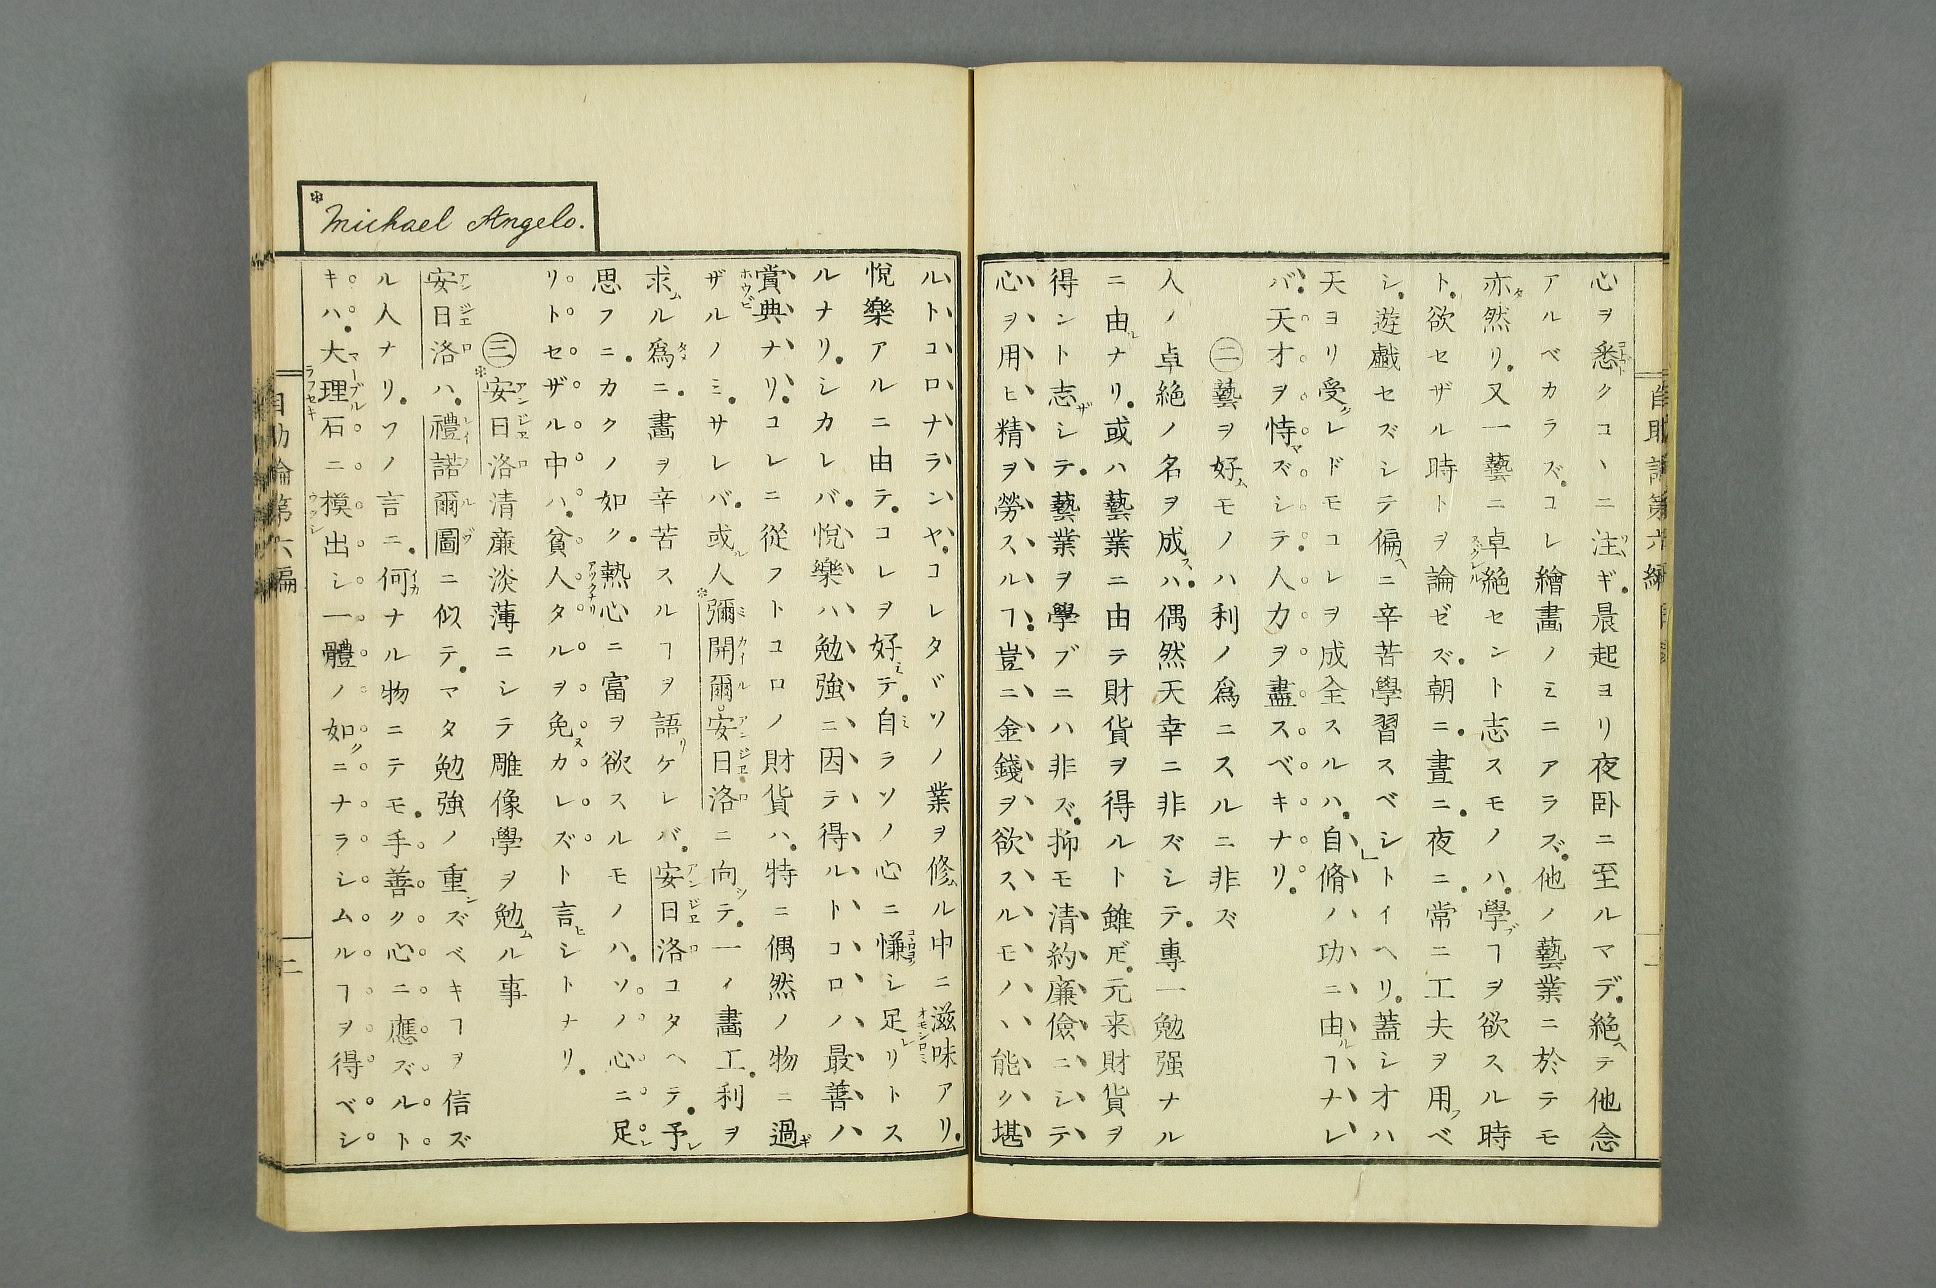 心ヲ悉クコヽニ注ギ。晨起ヨリ夜卧ニ至ルマデ。絶ヘテ他念
アルベカラズ。コレ繪畫ノミニアラズ。他ノ藝業ニ於テモ
亦然リ。又一藝ニ卓絶セント志スモノハ。學ブヿヲ欲スル時
ト。欲セザル時トヲ論ゼズ。朝ニ。晝ニ。夜ニ。常ニ工夫ヲ用フベ
シ。遊戲セズシテ偏ヘニ辛苦學習スベシ」トイヘリ。蓋シオハ
天ヨリ受クレドモコレヲ成全スルハ。自脩ノ功ニ由ルヿナレ
バ。天才ヲ恃マズシテ。人力ヲ盡スベキナリ。
㊁藝ヲ好ムモノハ利ノ爲ニスルニ非ズ
人ノ卓絶ノ名ヲ成スハ。偶然天幸ニ非ズシテ。專一勉强ナル
ニ由ルナリ。或ハ藝業ニ由テ財貨ヲ得ルト雖𪜈。元来財貨ヲ
得ント志ザシテ。藝業ヲ學ブニハ非ズ。抑モ清約廉儉ニシテ
心ヲ用ヒ精ヲ勞スルヿ。豈ニ金錢ヲ欲スルモノヽ能ク堪
ルトコロナランヤ。コレタヾソノ業ヲ修ムル中ニ滋味アリ。
悅樂アルニ由テ。コレヲ好ミテ。自ミラソノ心ニ慊シ足レリトス
ルナリ。シカレバ。悅樂ハ勉强ニ因テ得ルトコロノ最善ハ
賞典ナリ。コレニ從フトコロノ財貨ハ。特ニ偶然ノ物ニ過ギ
ザルノミ。サレバ。或ル人彌開爾安日洛ニ向ツテ。一イ畫工。利ヲ
求ムル爲ニ。畫ヲ辛苦スルヿヲ語リケレバ。安日洛コタヘテ。予レ
思フニ。カクノ如ク。熱心ニ富ヲ欲スルモノハ。ソノ心ニ足レ
リトセザル中ハ。貧人タルヲ免ヌカレズト言ヒシトナリ。
㊂安日洛清廉淡薄ニシテ雕像學ヲ勉ムル事
安日洛ハ。禮諾爾圖ニ似テ。マタ勉强ノ重ンズベキヿヲ信ズ
ル人ナリ。ソノ言ニ。何ナル物ニテモ。手善ク心ニ應ズルト
キハ。大理石ニ摸出シ一體ノ如クニナラシムルヿヲ得ベシ
*Michael Angelo.
自助論第六編
二